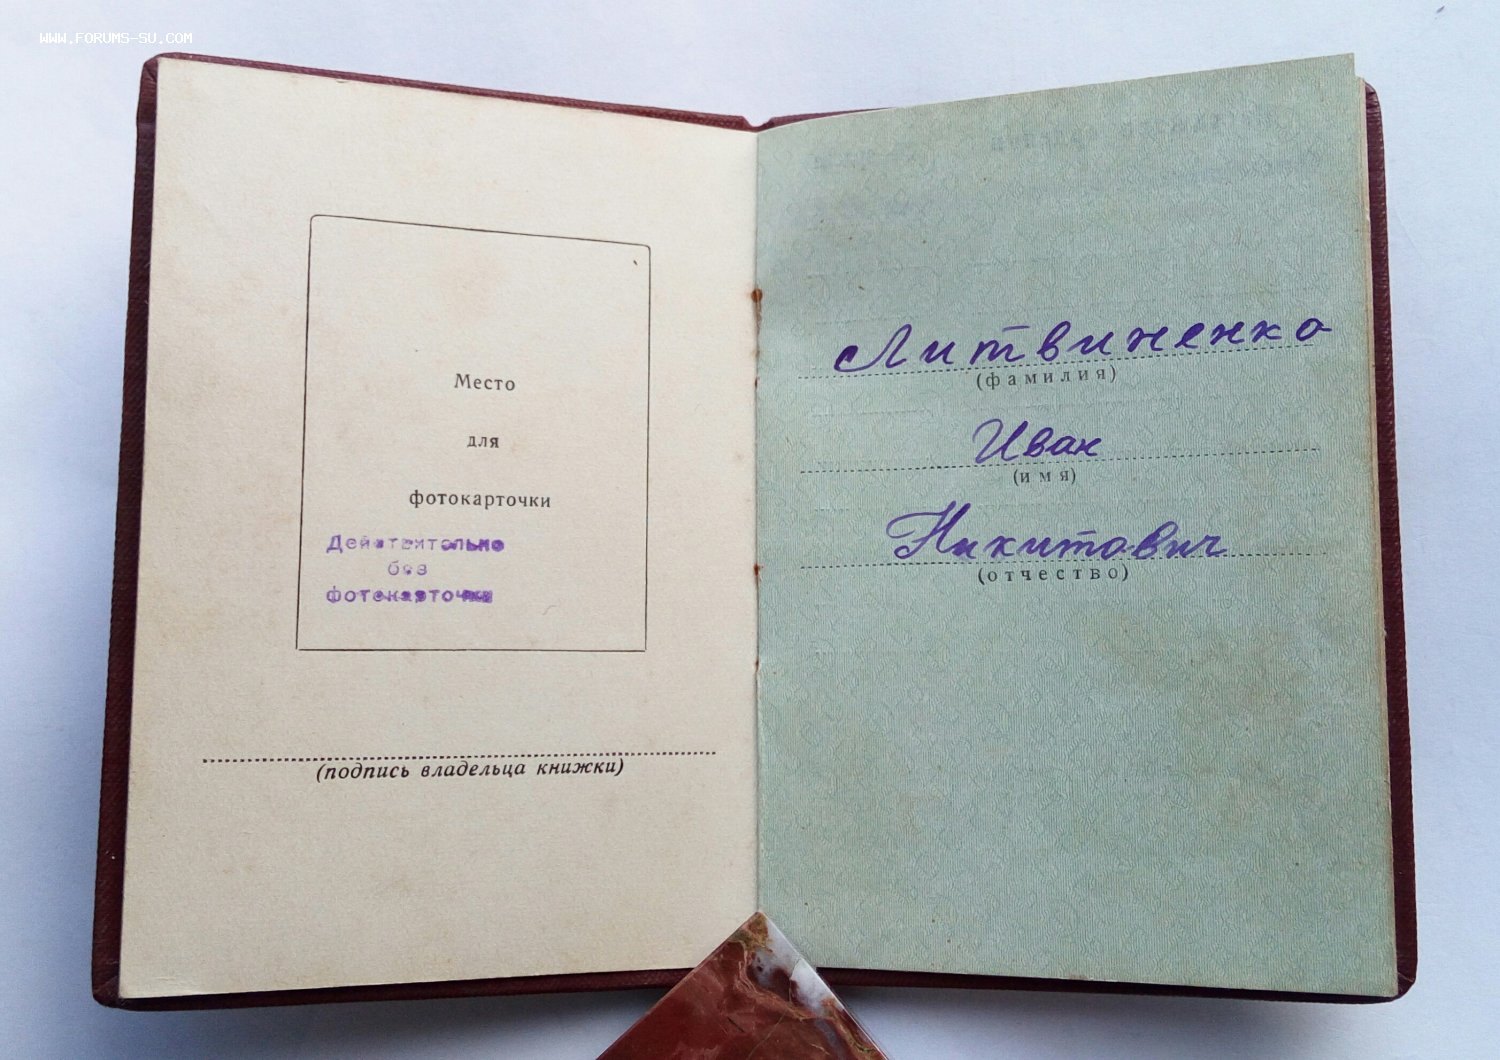 WWW.FORUMS-SU.COM
Место
для
фотокарточки
Действительно
без
фотокарточки
(подпись владельца книжки)
Литвиненко
(фамилия)
Иван
(имя)
Никитович
(отчество)